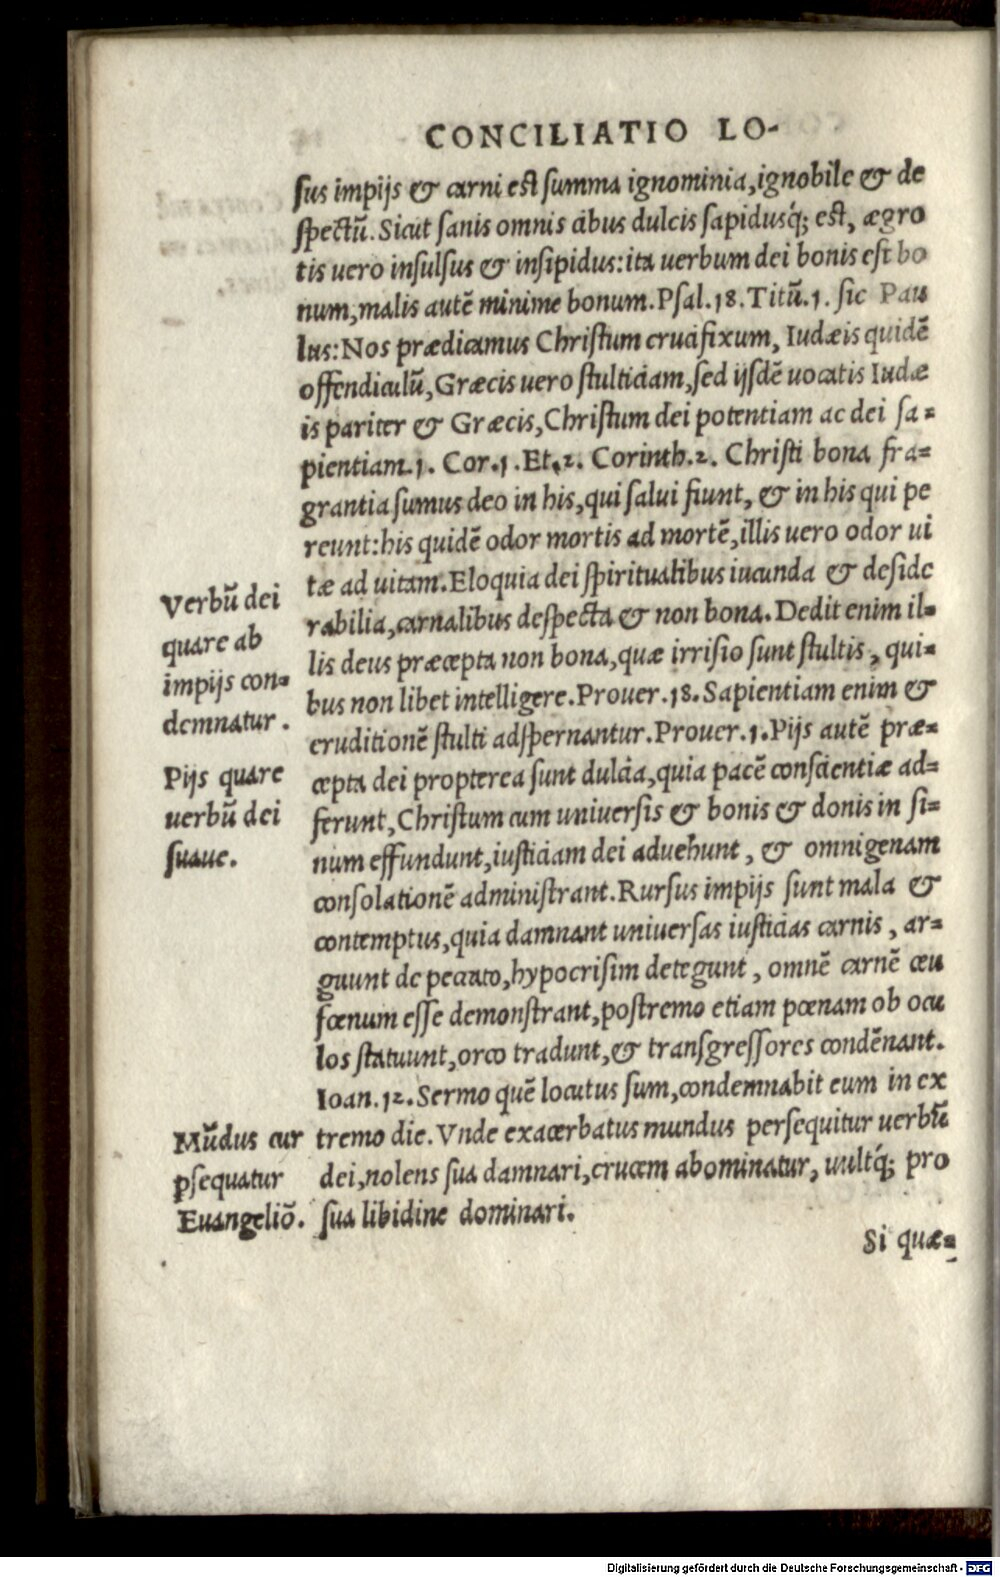 CONCILIATIO LO-
sus impijs & carni est summa ignominia, ignobile & de
spectũ. Sicut sanis omnis cibus dulcis sapidusq́; est, ægro
tis uero insulsus & insipidus: ita uerbum dei bonis est bo
num, malis autẽ minime bonum. Psal. 18. Titũ. 1. sic Pau
lus: Nos prædicamus Christum crucifixum, Iudæis quidẽ
offendiculũ, Græcis uero stulticiam, sed ijsdẽ uocatis Iudæ
is pariter & Græcis, Christum dei potentiam ac dei sa=
pientiam. 1. Cor. 1. Et. 2. Corinth. 2. Christi bona fra=
grantia sumus deo in his, qui salui fiunt, & in his qui pe
reunt: his quidẽ odor mortis ad mortẽ, illis uero odor ui
tæ ad uitam. Eloquia dei spiritualibus iucunda & deside
rabilia, carnalibus despecta & non bona. Dedit enim il=
lis deus præcepta non bona, quæ irrisio sunt stultis, qui=
bus non libet intelligere. Prouer. 18. Sapientiam enim &
eruditionẽ stulti adspernantur. Prouer. 1. Pijs autẽ præ=
cepta dei propterea sunt dulcia, quia pacẽ conscientiæ ad=
ferunt, Christum cum uniuersis & bonis & donis in si=
num effundunt, iusticiam dei aduehunt, & omnigenam
consolationẽ administrant. Rursus impijs sunt mala &
contemptus, quia damnant uniuersas iusticias carnis, ar=
guunt de peccato, hypocrisim detegunt, omnẽ carnẽ ceu
fœnum esse demonstrant, postremo etiam pœnam ob ocu
los statuunt, orco tradunt, & transgressores condẽnant.
Ioan. 12. Sermo quẽ locutus sum, condemnabit eum in ex
tremo die. Vnde exacerbatus mundus persequitur uerbũ
dei, nolens sua damnari, crucem abominatur, uultq́; pro
sua libidine dominari.
Si quæ=
Verbũ dei
quare ab
impijs con=
demnatur.
Pijs quare
uerbũ dei
suaue.
Mũdus cur
ꝑsequatur
Euangeliõ.
Digitalisierung gefördert durch die Deutsche Forschungsgemeinschaft - DFG